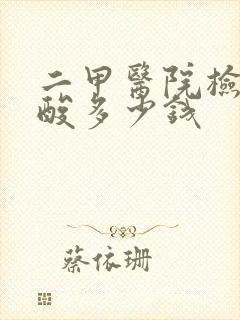 二甲醫院檢
酸多少錢
蔡依珊